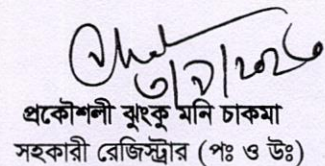 প্রকৌশলী ঝুংকু মনি চাকমা
সহকারী রেজিস্ট্রার (পঃ ও উঃ)